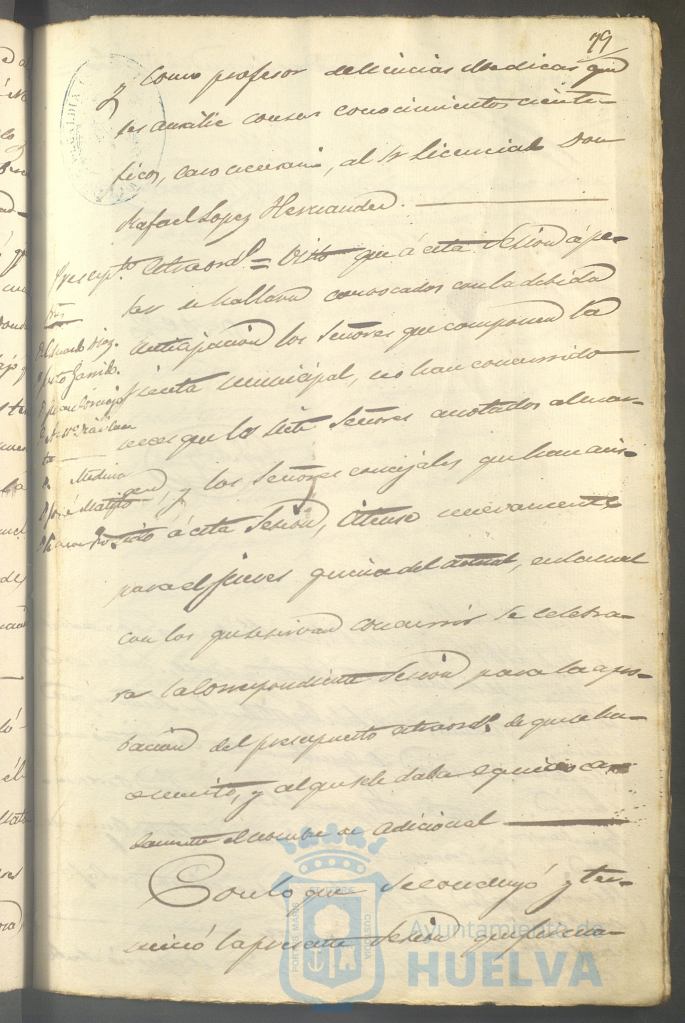 79
y como profesor de Ciencias Medicas que
les ausilie con sus conocimientos cienti-
ficos, caso necesario, al Sr Licenciado Don
Rafael Lopez Hernandez.
Presupto. estraord.l = Visto que á esta Sesion á pe-
sar se hallaban convocados con la debida
anticipacion los Señores que componen la
Junta municipal, no han concurrido
mas que los siete Señores anotados al mar-
gen, y los Señores concejales que han asis-
tido á esta Sesion, Citense nuevamente
para el Jueves quince del actual, en la cual
con los que se sirvan concurrir se celebra-
ra la correspondiente Sesion para la apro-
bacion del presupuesto estraord.l de que se ha
escrito, y al que se le daba equivoca-
damente el nombre de adicional
Sres
D. Eduardo Diaz
D. Justo Garrido
D. Juan
ta
Medina
D. José Matito
Con lo que se concluyó y ter-
minó la presente Sesion que firman
PORTUS MARIS
CUSTODIA
Ayuntamiento de
HUELVA